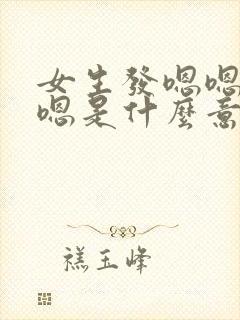 女生發嗯嗯
嗯是什麼意
禚玉峰